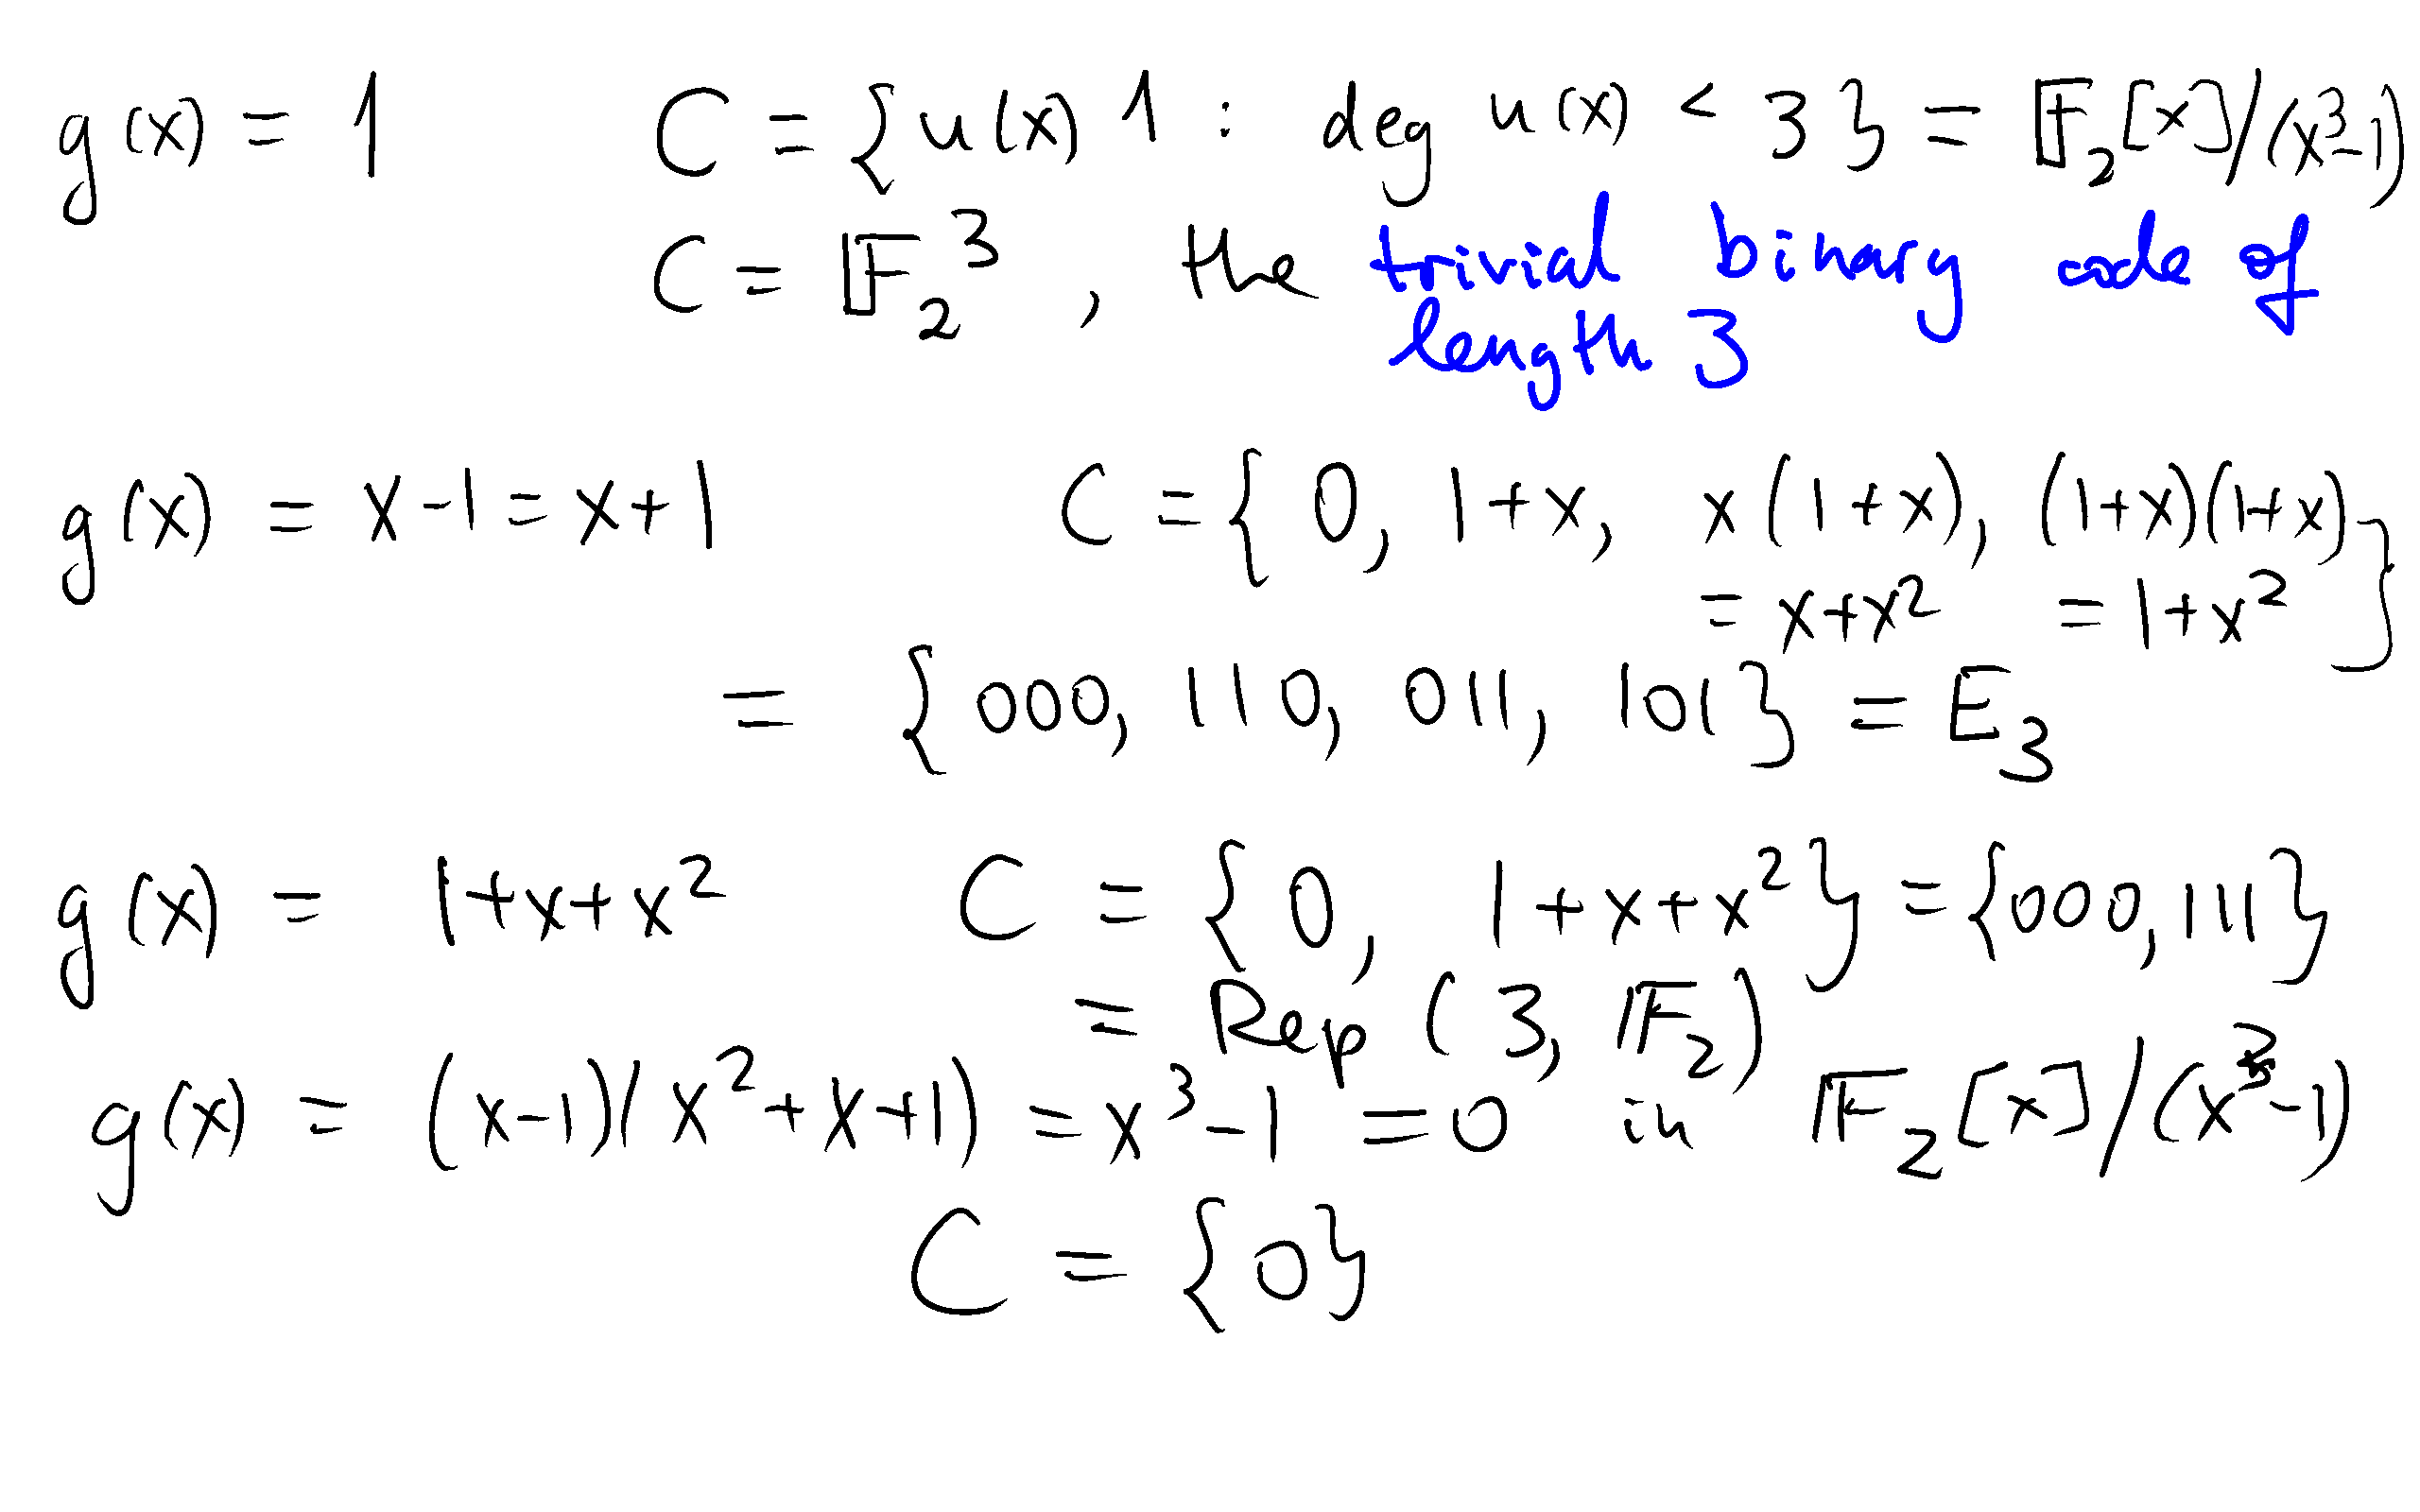 g(x) = 1 C = {u(x) 1 : deg u(x) < 3} = 𝔽₂[x]/(x³-1)
C = 𝔽₂³, the trivial binary code of
length 3
g(x) = x-1 = x+1 C = {0, 1+x, x(1+x), (1+x)(1+x)
= x+x² = 1+x²}
= {000, 110, 011, 101} = E₃
g(x) = 1+x+x² C = {0, 1+x+x²} = {000, 111}
= Rep (3, 𝔽₂)
g(x) = (x-1)(x²+x+1) = x³-1 = 0 in 𝔽₂[x]/(x³-1)
C = {0}